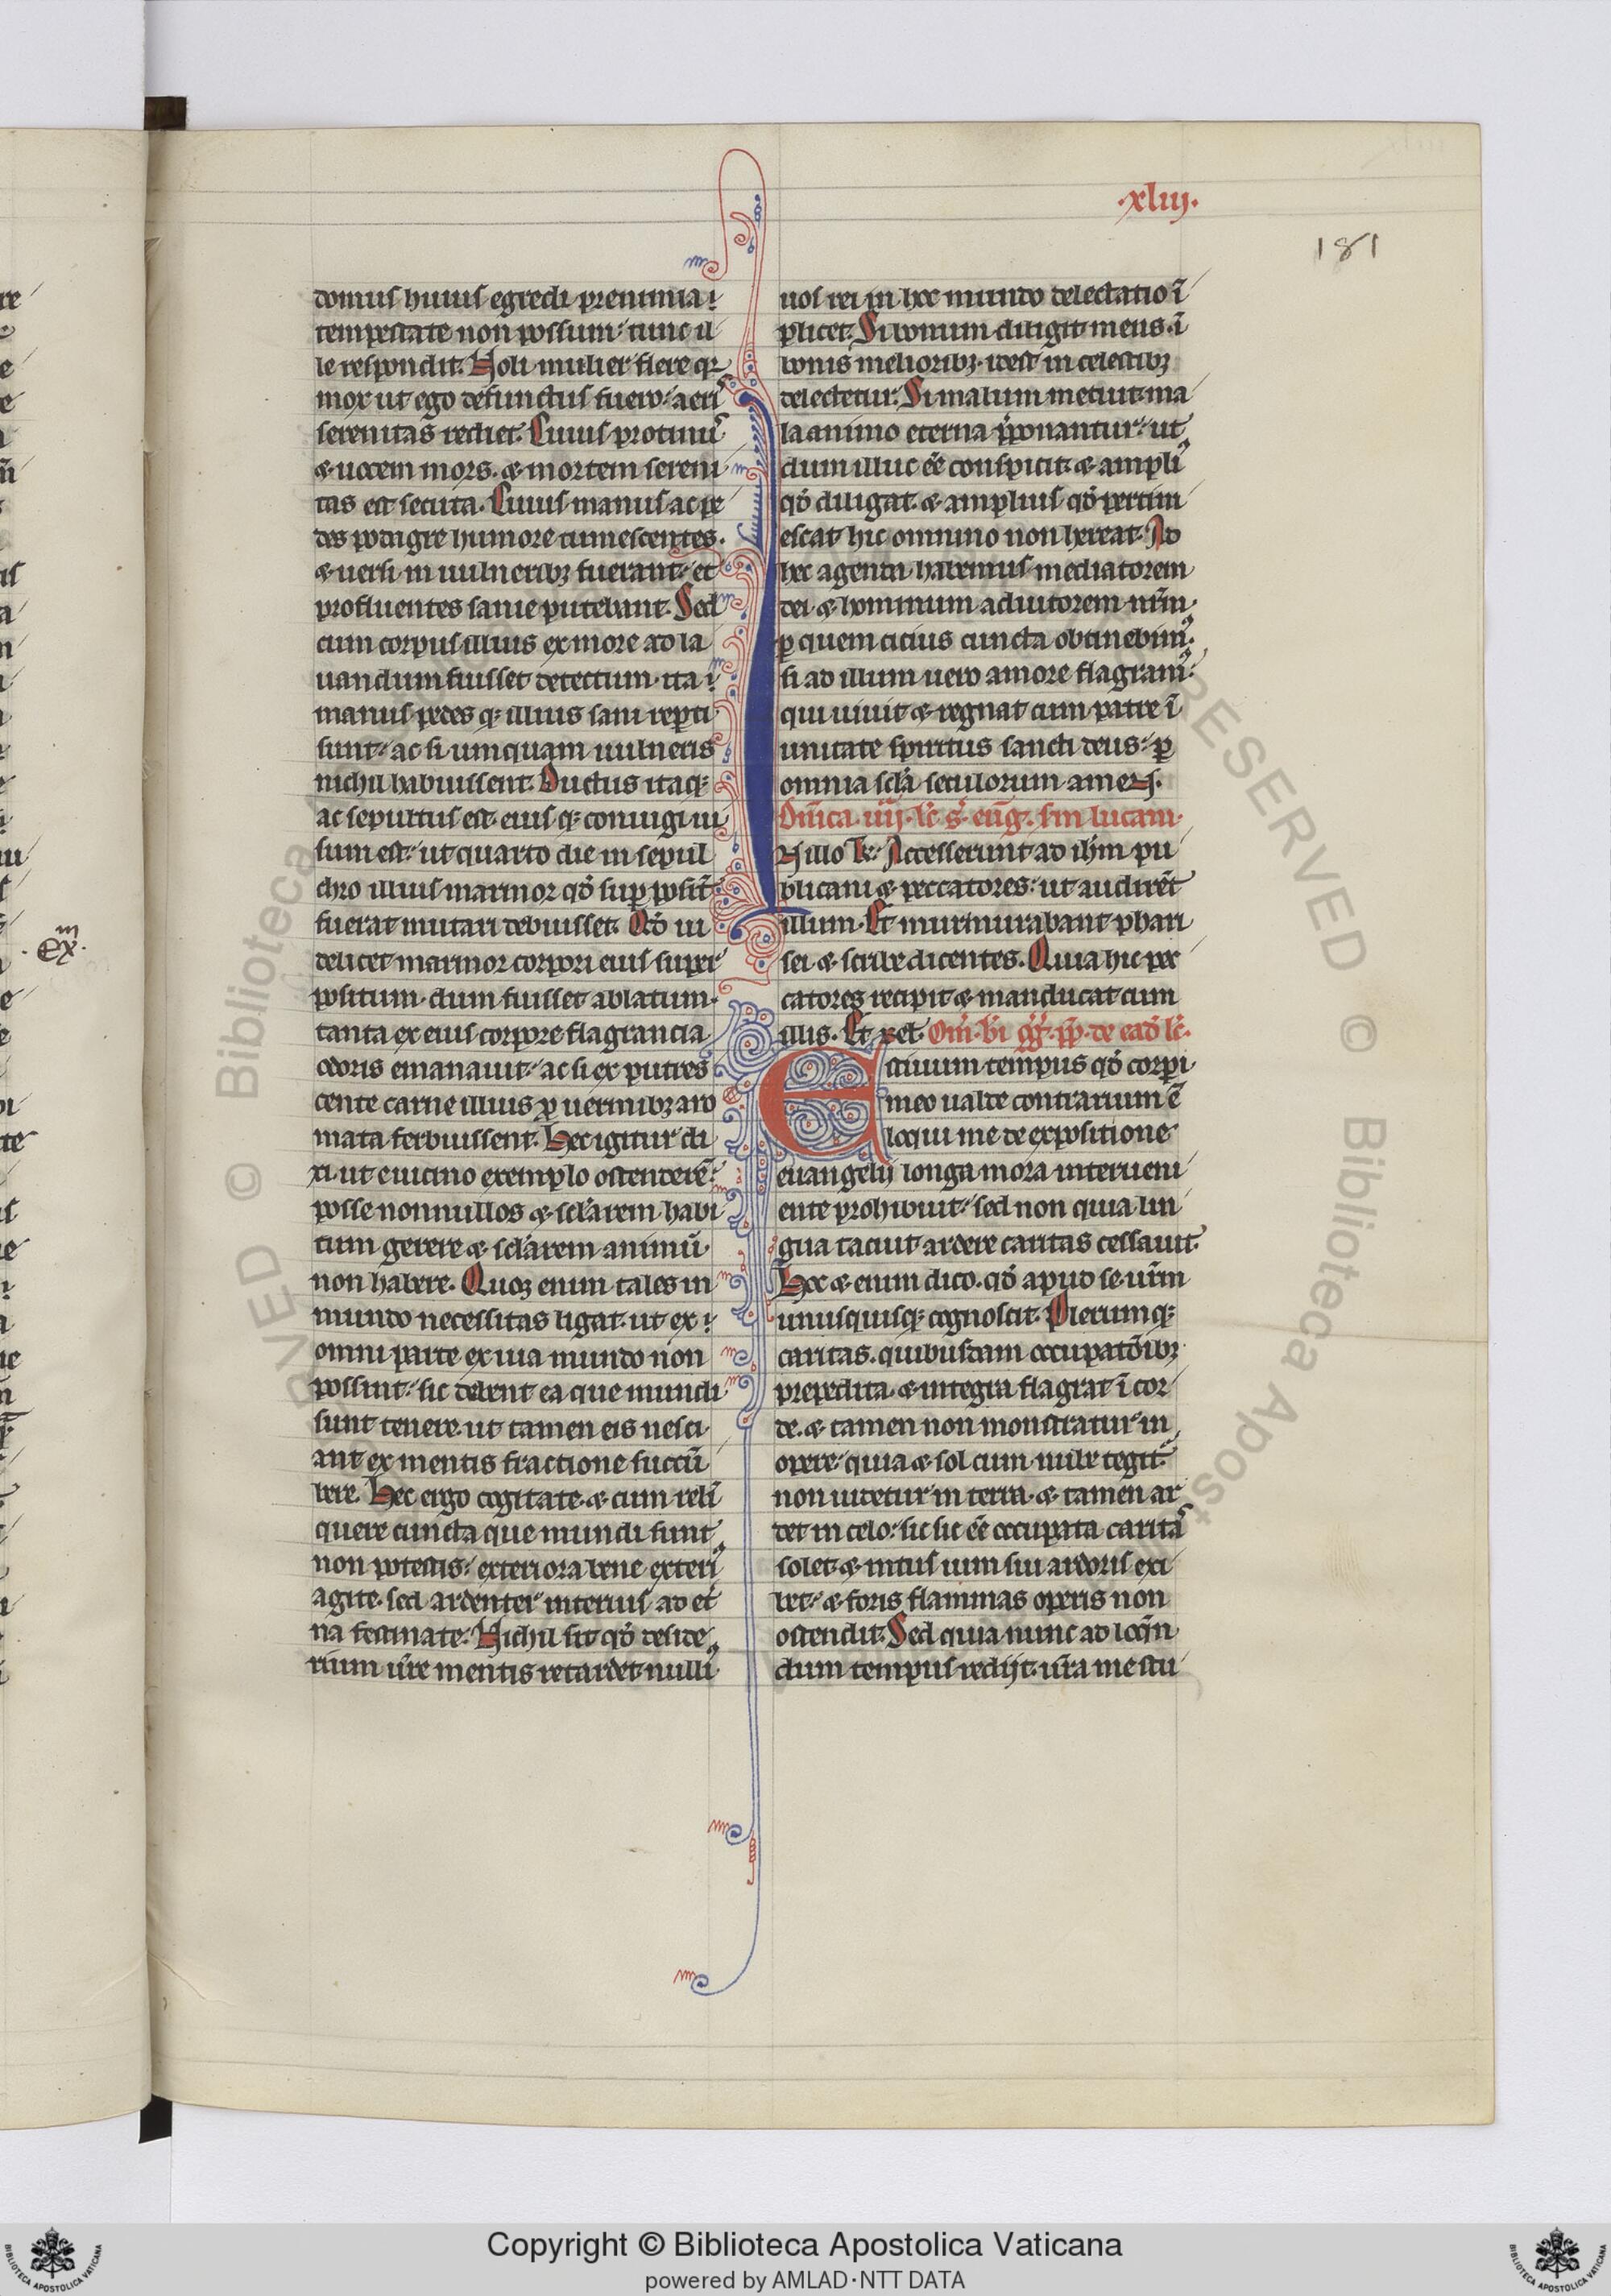 .xliij.
181
domus huius egredi pre nimia
tempestate non possum. tunc il
le respondit. Noli mulier flere qr
mox ut ego defunctus fuero. aeris
serenitas rediet. Cuius protinus
& uocem mors. & mortem sereni
tas est secuta. Cuius manus ac pe
des podagre humore tumescentes.
& uersi in uulneribꝫ fuerant. et
profluentes sanie putebant. Sed
cum corpus illius ex more ad la
uandum fuisset detectum. ita
manus pedes qꝫ illius sani repti
sunt. ac si umquam uulneris
nichil habuissent. Ductus itaqꝫ
ac sepultus est. eius qꝫ coniugi ui
sum est. ut quarto die in sepul
chro illius marmor qd̄ suꝑ positū
fuerat mutari debuisset. Qd̄ ui
delicet marmor corpori eius super
positum. dum fuisset ablatum.
tanta ex eius corpore flagrancia
odoris emanauit. ac si ex putres
cente carne illius ꝓ uermibꝫ aro
mata ferbuissent. Hec igitur di
xi. ut e uicino exemplo ostenderē.
posse nonnullos & sclarem habi
tum gerere & sclarem animū.
non habere. Quos enim tales in
mundo necessitas ligat. ut ex
omni parte exui a mundo non
possint. sic debent ea que mundi
sunt tenere. ut tamen eis nesci
ant ex mentis fractione succū
bere. Hec ergo cogitate. & cum reli
quere cuncta que mundi sunt
non potestis. exteriora bene exteri9
agite. sed ardenter interius ad et'
na festinate. Nichil sit qd̄ deside
rium ur̄e mentis retardet. nulli9
uos rei in hoc mundo delectatio ī
plicet. Si bonum diligit. mens. ī
bonis melioribꝫ. idest in celestibꝫ
delectetur. Si malum metuit. ma
la animo eterna p̄ponantur. ut
dum illuc eē conspicit. & ampli9
qd̄ diligat. & amplius qd̄ pertim
escat. hic omnino non hereat. Ad
hec agenda habemus mediatorem
dei & hominum adiutorem nr̄m.
ꝑ quem cicius cuncta obtinebim9.
si ad illum uero amore flagram9.
qui uiuit & regnat cum patre ī
unitate spiritus sancti deus. ꝑ
omnia scl̄a seculorum amen.
Dn̄ica. iiij. lc̄. s. euḡ. sm̄ lucam.
IN illo t. Accesserunt ad ihm̄ pu
blicani & peccatores. ut audirēt
illum. Et murmurabant phari
sei & scribe dicentes. Quia hic pec
catores recipit & manducat cum
illis. Et rel. Om̄. bi gg̅. pp̄. de ead̄ lc̄.
Estiuum tempus qd̄ corpi
meo ualde contrarium ē
loqui me de expositione
euangelij longa mora interueni
ente prohibuit. sed non quia lin
gua tacuit ardere caritas cessauit.
Hoc & enim dico. qd̄ apud se ur̄m
unusquisqꝫ cognoscit. Plerumqꝫ
caritas. quibusdam occupatōibꝫ
prepedita. & integra flagrat ī cor
de. & tamen non monstratur in
opere. quia & sol cum nube tegit᷑.
non uidetur in terra. & tamen ar
det in celo. sic sic eē occupata caritas
solet. & intus uim sui ardoris exi
bet. & foris flammas operis non
ostendit. Sed quia nunc ad loqn̄
dum tempus redijt. ur̄a me stu
Copyright © Biblioteca Apostolica Vaticana
powered by AMLAD·NTT DATA